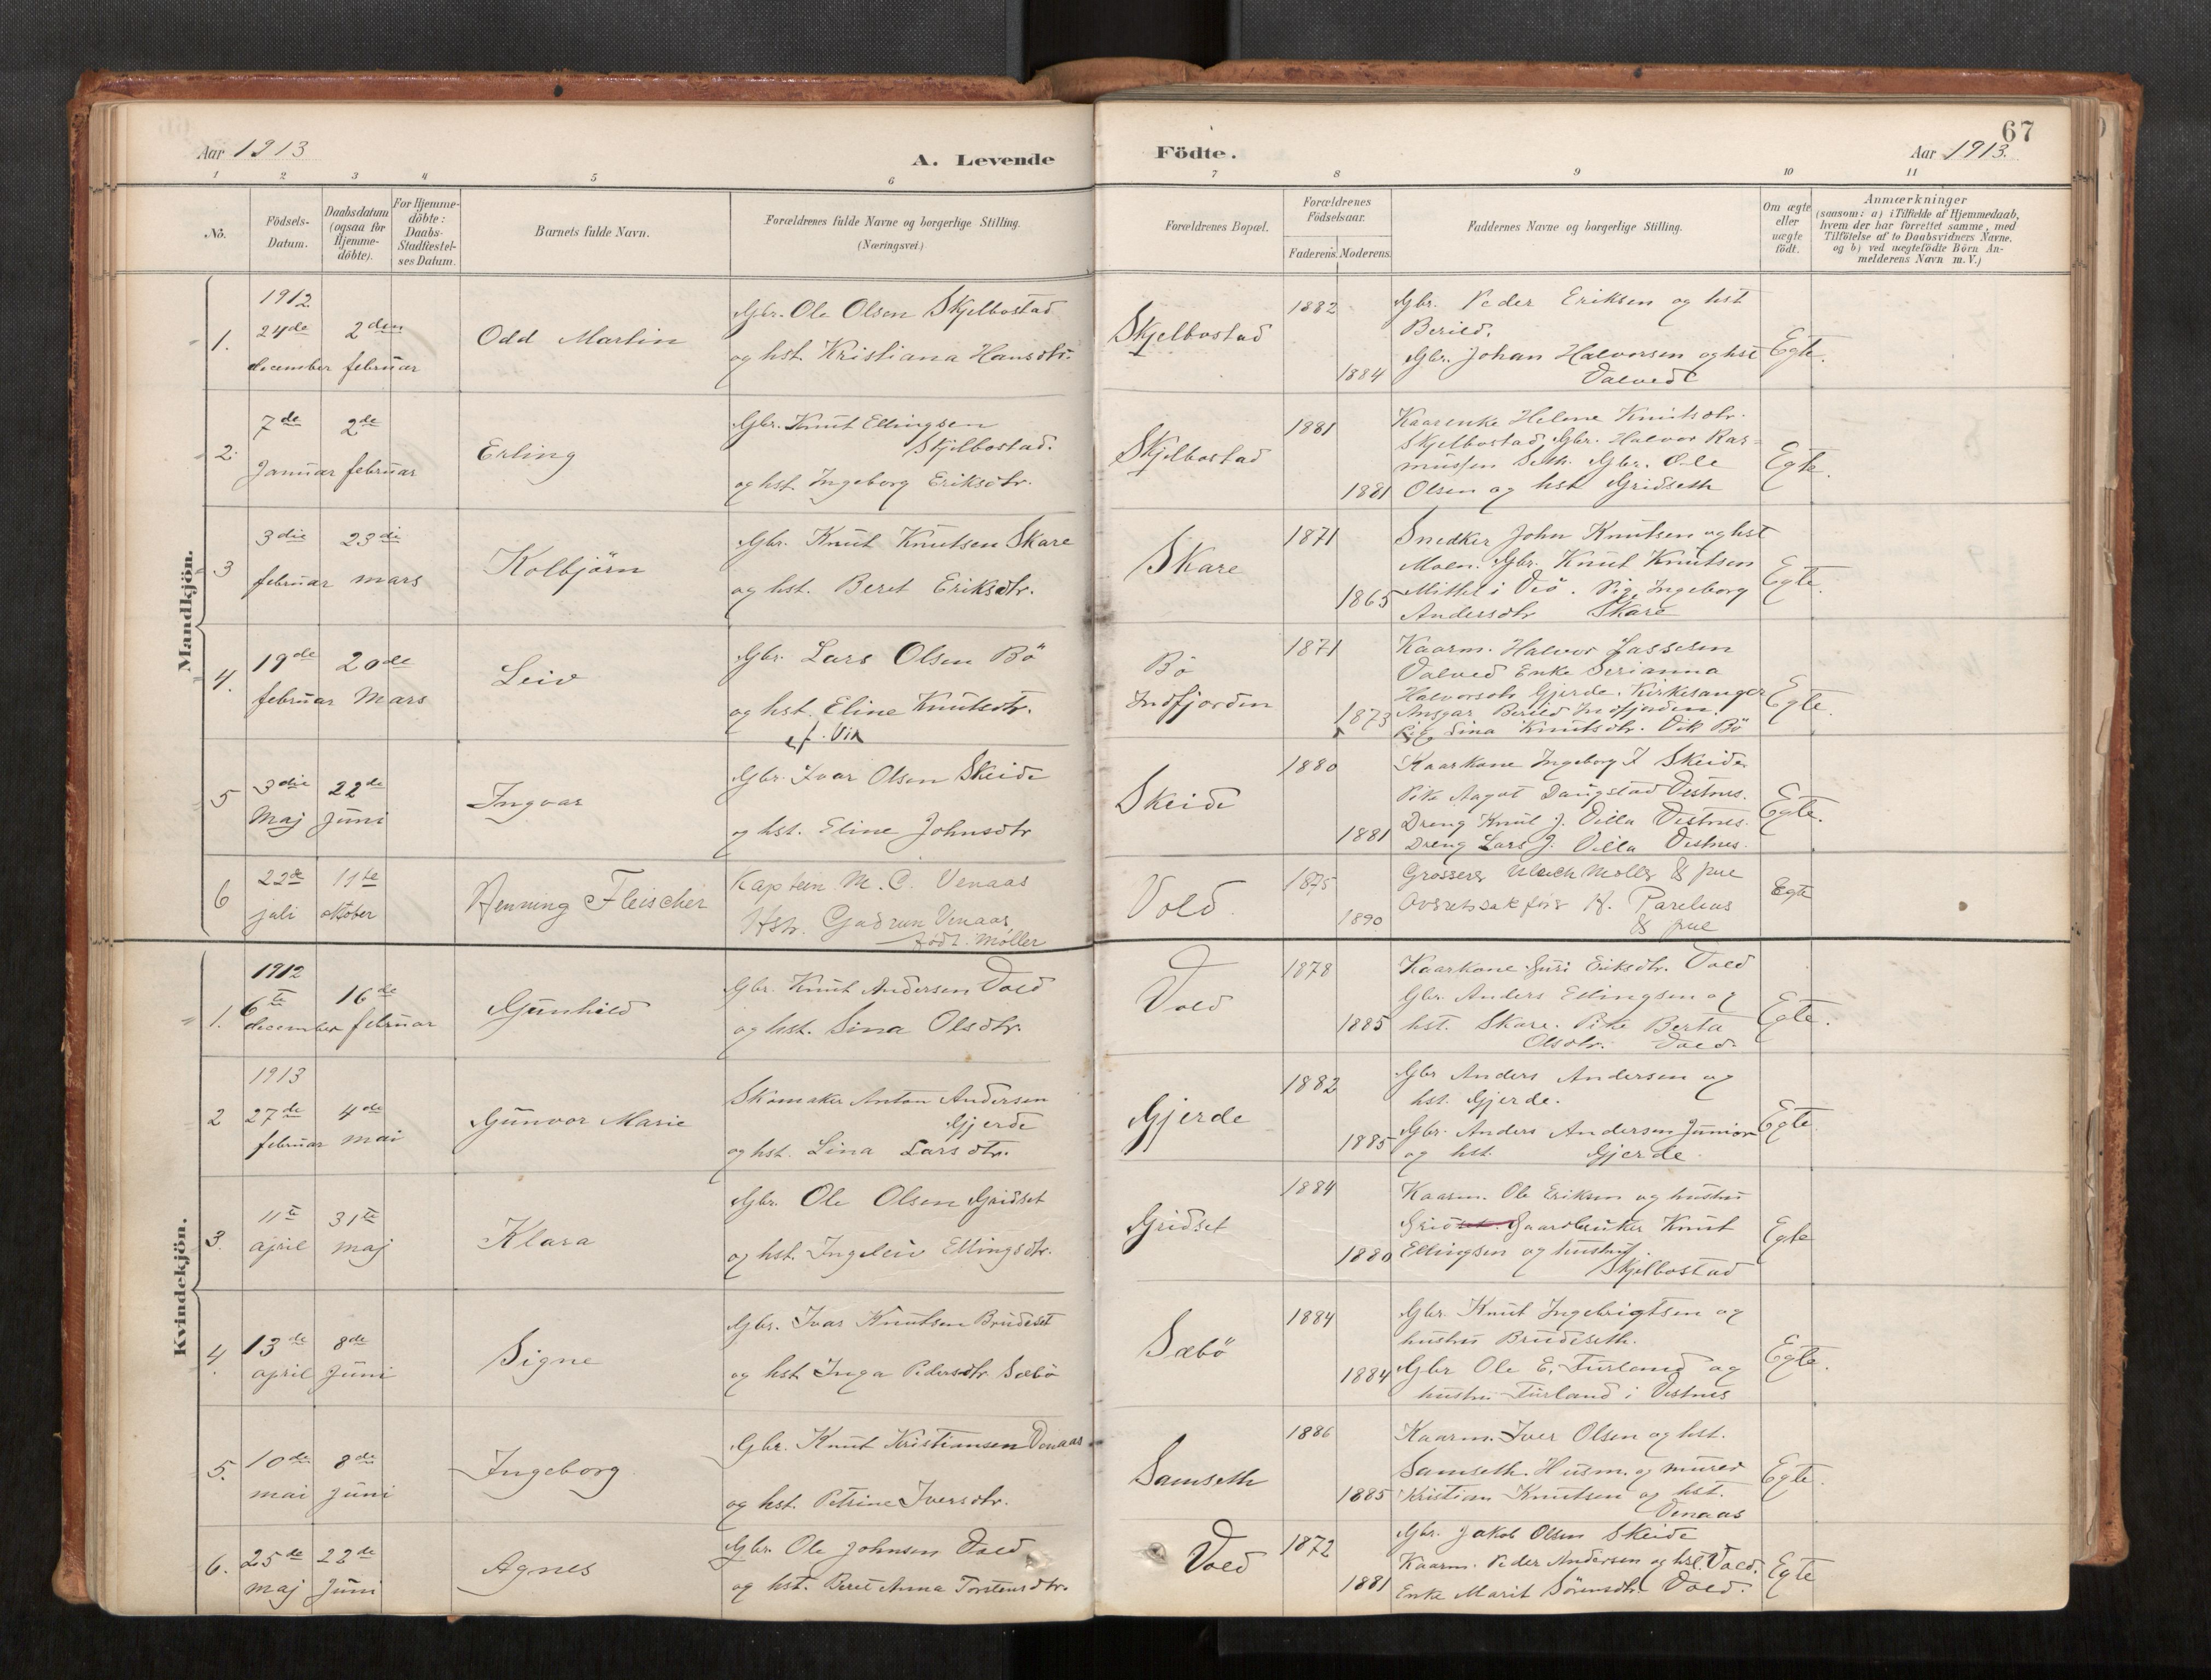 67
Aar 1913
A. Levende
Födte.
Aar 1913.
1 2 3 4 5 6 7 8 9 10 11
No.
Födsels-
Datum.
Daabsdatum
(ogsaa for
Hjemme-
döbte).
For Hjemme-
döbte:
Daabs-
Stadfæstel-
ses Datum.
Barnets fulde Navn.
Forældrenes fulde Navne og borgerlige Stilling.
(Næringsvei.)
Forældrenes Bopæl.
Forældrenes
Födselsaar.
Faderens. Moderens.
Faddernes Navne og borgerlige Stilling.
Om ægte
eller
uægte
födt.
Anmærkninger
(saasom: a) i Tilfælde af Hjemmedaab,
hvem der har forrettet samme, med
Tilföielse af to Daabsvidners Navne,
og b) ved uægtefödte Börn An-
melderens Navn m. V.)
Mandkjön.
1.
1912
24de
december
2den
februar
Odd Martin
Gbr. Ole Olsen Skjelbostad
og hst. Kristiana Hansdtr.
Skjelbostad
1882
1884
Gbr. Peder Eriksen og hst
Berild.
Gbr. Johan Halvorsen og hst
Valved
Egte.
2.
7de
Januar
2de
februar
Erling
Gbr. Knut Ellingsen
Skjelbostad.
og hst. Ingeborg Eriksdtr.
Skjelbostad
1881
1881
Kaarenke Helene Knutsdtr.
Skjelbostad, Gbr. Halvor Ras-
mussen Seth. Gbr. Ole
Olsen og hst Gridseth
Egte.
3
3die
februar
23di
mars
Kolbjörn
Gbr. Knut Knutsen Skare
og hst. Beret Eriksdtr.
Skare
1871
1865
Snedker John Knutsen og hst
Moen. Gbr. Knut Knutsen
Mittet i Veö. Pige Ingeborg
Andersdtr Skare
Egte.
4.
19de
februar
20de
Mars
Leiv
Gbr. Lars Olsen Bö
og hst. Eline Knutsdtr.
Vik
Bö
Indfjorden
1871
1873
Kaarm. Halvor Lassesen
Valved Enke Serianna
Halvorsdtr Gjerde. Kirkesanger
Ansgar Berild Indfjorden.
Sina Knutsdtr. Vik Bö
Egte.
5
3die
Maj
22de
Juni
Ingvar
Gbr. Ivar Olsen Skeide
og hst. Eline Johnsdtr
Skeide
1880
1881
Kaarkone Ingeborg I Skeide
Pike Aagot Daugstad Vestnes.
Dreng Knut J. Villa Vestnes.
Dreng Lars J. Villa Vestnes.
Egte.
6
22de
juli
11te
oktober
Henning Fleischer
Kaptein M. C. Venaas
Hstr. Gudrun Venaas
född. Møller
Vold.
1875
1890
Grosserer Ulrich Møller & frue
Overretssakfører K. Parelius
& frue
Egte
Kvindekjön.
1.
1912
6te
december
16de
februar
Gunhild
Gbr. Knut Andersen Vold
og hst. Sina Olsdtr.
Vold
1878
1885
Kaarkone Guri Eriksdtr. Vold
Gbr. Anders Ellingsen og
hst. Skare. Pike Berta
Olsdtr. Vold.
Egte.
2
1913
27de
februar
4de
mai
Gunvor Marie
Skomaker Anton Andersen
Gjerde
og hst. Lina Larsdtr.
Gjerde
1882
1885
Gbr Anders Andersen og
hst. Gjerde.
Gbr. Anders Andersen Junior
og hst. Gjerde.
Egte.
3.
11te
april
31te
maj
Klara
Gbr. Ole Olsen Gridset
og hst. Ingeleiv Ellingsdtr.
Gridset
1884
1880
Kaarm. Ole Eriksen og hustru
Gridset. Gaardbruker Knut
Ellingsen og hustru
Skjelbostad
Egte
4.
13de
april
8de
Juni
Signe
Gbr. Ivar Knutsen Brudeset
og hst. Inga Pedersdtr Sæbö
Sæbö
1884
1884
Gbr. Knut Ingebrigtsen og
hustru Brudeseth.
Gbr Ole E. Furland og
hustru Furland i Vestnes
Egte.
5.
10de
mai
8de
Juni
Ingeborg
Gbr. Knut Kristiansen Venaas
og hst. Petrine Iversdtr.
Samseth
1886
1885
Kaarm. Iver Olsen og hst.
Samseth. Husm. og murer
Kristian Knutsen og hst.
Venaas
Egte.
6.
25de
maj
22de
Juni
Agnes
Gbr. Ole Johnsen Vold
og hst. Beret Anna Torstensdtr.
Vold
1872
1881
Gbr. Jakob Olsen Skeide
Kaarm. Peder Andersen og hst. Vold.
Enke Marit Sörensdtr. Vold.
Egte